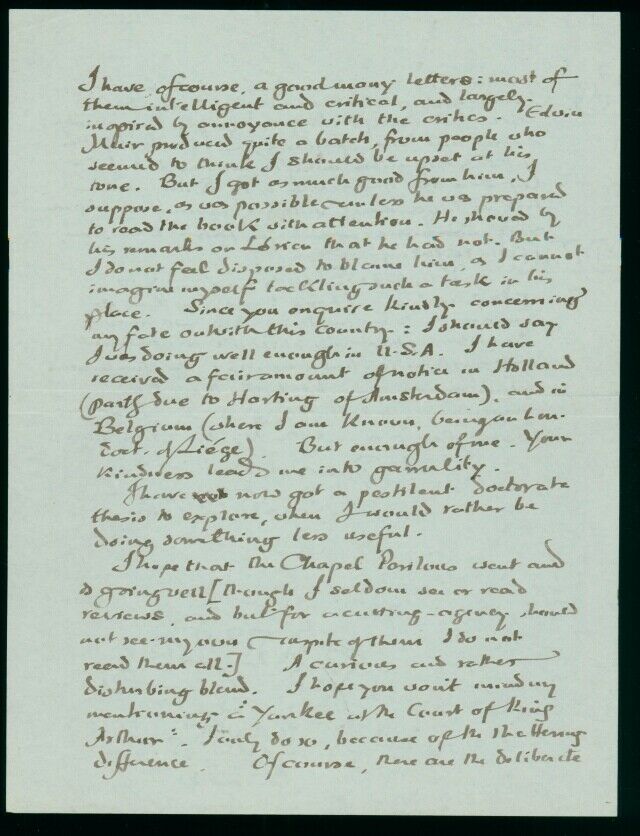 I have, of course, a good many letters: most of
them intelligent and critical, and largely
inspired by annoyance with the critics. Edwin
Muir produced quite a batch, from people who
seemed to think I should be upset at his
tone. But I got as much good from him, I
suppose, as was possible – unless he was prepared
to read the book with attention. He showed by
his remarks on Lórien that he had not. But
I do not feel disposed to blame him, as I cannot
imagine myself tackling such a task in his
place. Since you enquire kindly concerning
my fate outwith this country: I should say
I was doing well enough in U.S.A. I have
received a fair amount of notice in Holland
(partly due to Harting of Amsterdam), and in
Belgium (where I am known, being an hon.
doct. of Liége). But enough of me. Your
kindness leads me into garrulity.
I have now got a pestilent doctorate
thesis to explore, when I would rather be
doing something less useful.
I hope that the Chapel Perilous went and
is going well [though I seldom see or read
reviews, and but for a cutting-agency should
not see my own – inspite of them I do not
read them all.] A curious and rather
disturbing blend. I hope you won't mind my
mentioning 'A Yankee at the Court of King
Arthur': I only do so, because of the
difference. Of course, there are the deliberate